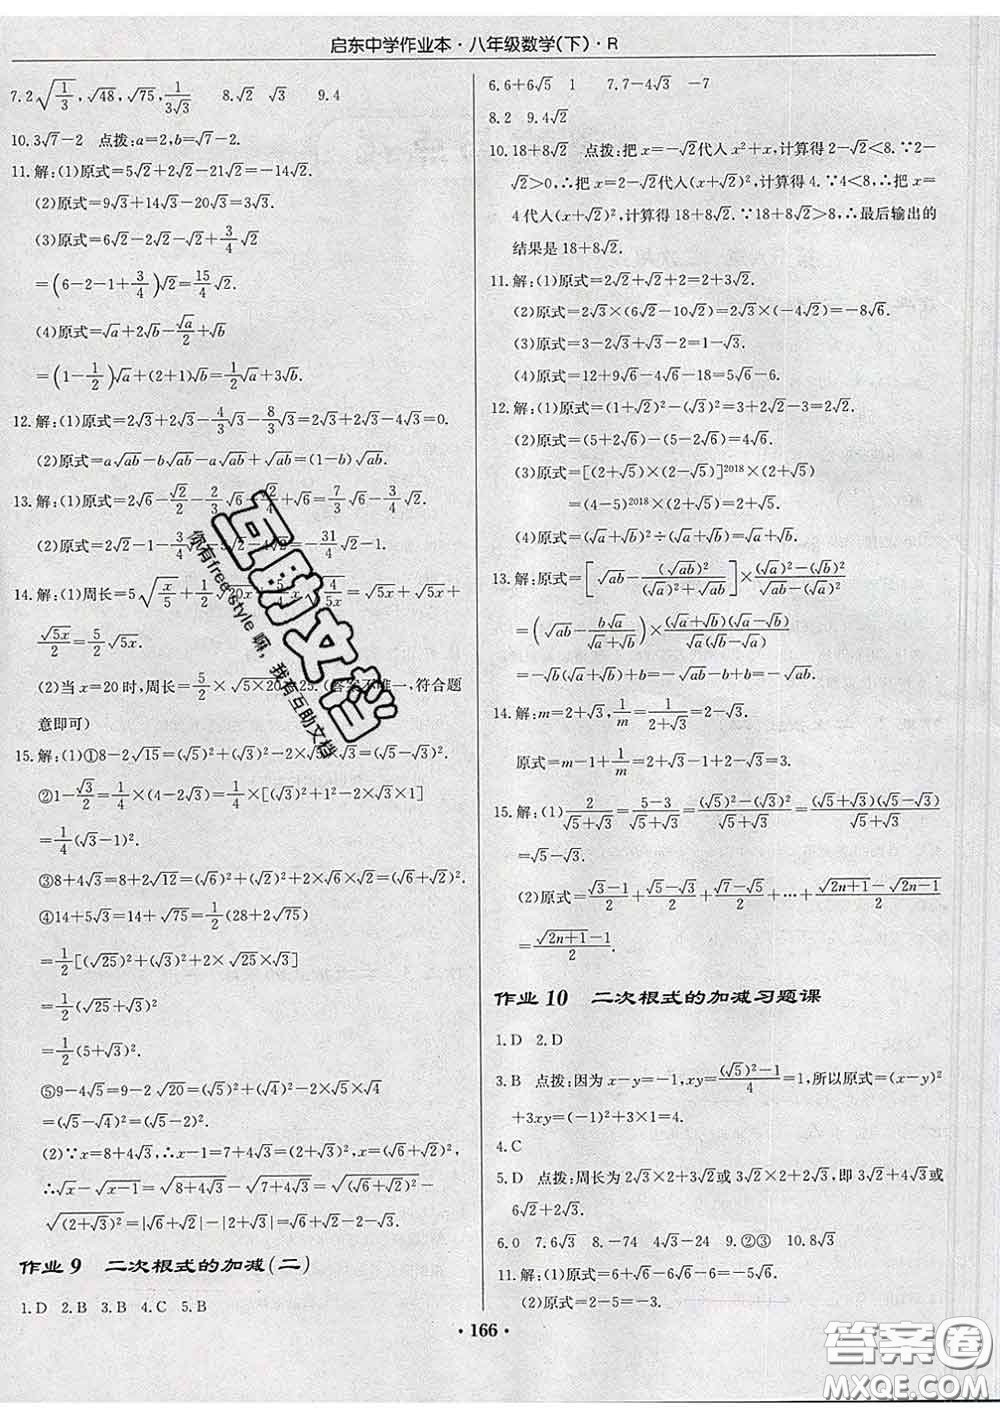 启东中学作业本·八年级数学(下)·R
7.2√(1/3),√48,√75,1/(3√3)  8.√2 √3  9.4
10.3√7-2 点拨:a=2,b=√7-2.
11.解:(1)原式=5√2+2√2-21√2=-14√2.
(2)原式=9√3+14√3-20√3=3√3.
(3)原式=6√2-2√2-√2+3/4√2
=(6-2-1+3/4)√2=15/4√2.
(4)原式=√a+2√b-√a/2+√b
=(1-1/2)√a+(2+1)√b=1/2√a+3√b.
12.解:(1)原式=2√3+2√3-4/3√3-8/3√3=2√3+2√3-4√3=0.
(2)原式=a√ab-b√ab-a√ab+√ab=(1-b)√ab.
13.解:(1)原式=2√6-√2/2-2/3√6-√2/4+√6=7/3√6-3/4√2.
(2)原式=2√2-1-√2/4-√2-2√2=-31/4√2-1.
14.解:(1)周长=5√(x/5)+1/2√20x+5/4x√(4/5x)=√5x+√5x+
√5x/2=5/2√5x.
(2)当x=20时,周长=5/2×√5×20=25.(答案不唯一,符合题
意即可)
15.解:(1)①8-2√15=(√5)²+(√3)²-2×√5×√3=(√5-√3)².
②1-√3/2=1/4×(4-2√3)=1/4×[(√3)²+1²-2×√3×1]
=1/4(√3-1)².
③8+4√3=8+2√12=(√6)²+(√2)²+2×√6×√2=(√6+√2)².
④14+5√3=14+√75=1/2(28+2√75)
=1/2[(√25)²+(√3)²+2×√25×√3]
=1/2(√25+√3)²
=1/2(5+√3)².
⑤9-4√5=9-2√20=(√5)²+(√4)²-2×√5×√4
=(√5-√4)²=(√5-2)².
(2)∵x=8+4√3,x-1=7+4√3=(2+√3)²,x=(√6+√2)²,
∴√x-√(x-1)=√(8+4√3)-√(7+4√3)=√(√6+√2)²-
√(2+√3)²=|√6+√2|-|2+√3|=√6+√2-2-√3.
作业9 二次根式的加减(二)
1.D 2.B 3.B 4.C 5.B
6.6+6√5 1 7.7-4√3 -7
8.2 9.4√2
10.18+8√2 点拨:把x=-√2代人x²+x,计算得2-√2<8.∵2-
√2>0,∴把x=2-√2代人(x+√2)²,计算得4.∵4<8,∴把x=
4代人(x+√2)²,计算得18+8√2.∵18+8√2>8,∴最后输出的
结果是18+8√2.
11.解:(1)原式=2√2+√2+2=2+3√2.
(2)原式=2√3×(6√2-10√2)=2√3×(-4√2)=-8√6.
(3)原式=3-2√3+√3-2=1-√3.
(4)原式=12+9√6-4√6-18=5√6-6.
12.解:(1)原式=(1+√2)²-(√3)²=3+2√2-3=2√2.
(2)原式=(5+2√6)-(5-2√6)=4√6.
(3)原式=[(2+√5)×(2-√5)]²⁰¹⁸×(2+√5)
=(4-5)²⁰¹⁸×(2+√5)=2+√5.
(4)原式=(√a+√b)²÷(√a+√b)=√a+√b.
13.解:原式=[√ab-(√ab)²/((√a)²+√ab)]×((√a)²-(√b)²)/((√a)²-√ab)
=(√ab-b√a/(√a+√b))×(√a+√b)(√a-√b)/(√a(√a-√b))
14.解:m=2+√3,1/m=1/(2+√3)=2-√3.
原式=m-1+1/m=2+√3-1+2-√3=3.
15.解:(1)2/(√5+√3)=(5-3)/(√5+√3)=((√5)²-(√3)²)/(√5+√3)=(√5+√3)(√5-√3)/(√5+√3)
=√5-√3.
(2)原式=(√3-1)/2+(√5-√3)/2+(√7-√5)/2+…+(√(2n+1)-√(2n-1))/2
=(√(2n+1)-1)/2.
作业10 二次根式的加减习题课
1.D 2.D
3.B 点拨:因为x-y=-1,xy=((√5)²-1)/4=1,所以原式=(x-y)²
+3xy=(-1)²+3×1=4.
4.C
5.D 点拨:周长为2√3×2+3√2或3√2×2+2√3,即3√2+4√3或
6√2+2√3.
6.0 7.6√3 8.-74 4√3-68 9.②③ 10.8√3
11.解:(1)原式=6+√6-6-6√6=-5√6.
(2)原式=2-5=-3.
·166·
互助文档
你有free style 嘛,我有互助文档
答案圈
MXQE.COM